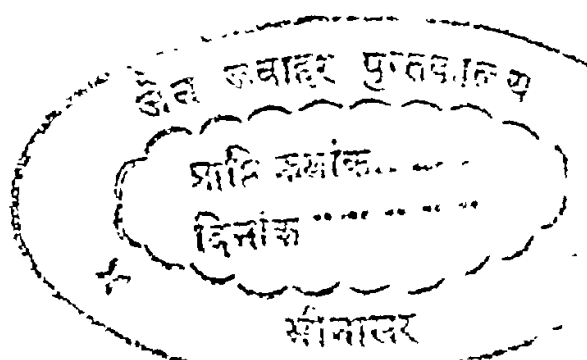 जैन जवाहर पुस्तकालय
प्राप्ति क्रमांक............
दिनांक ..................
भीनासर